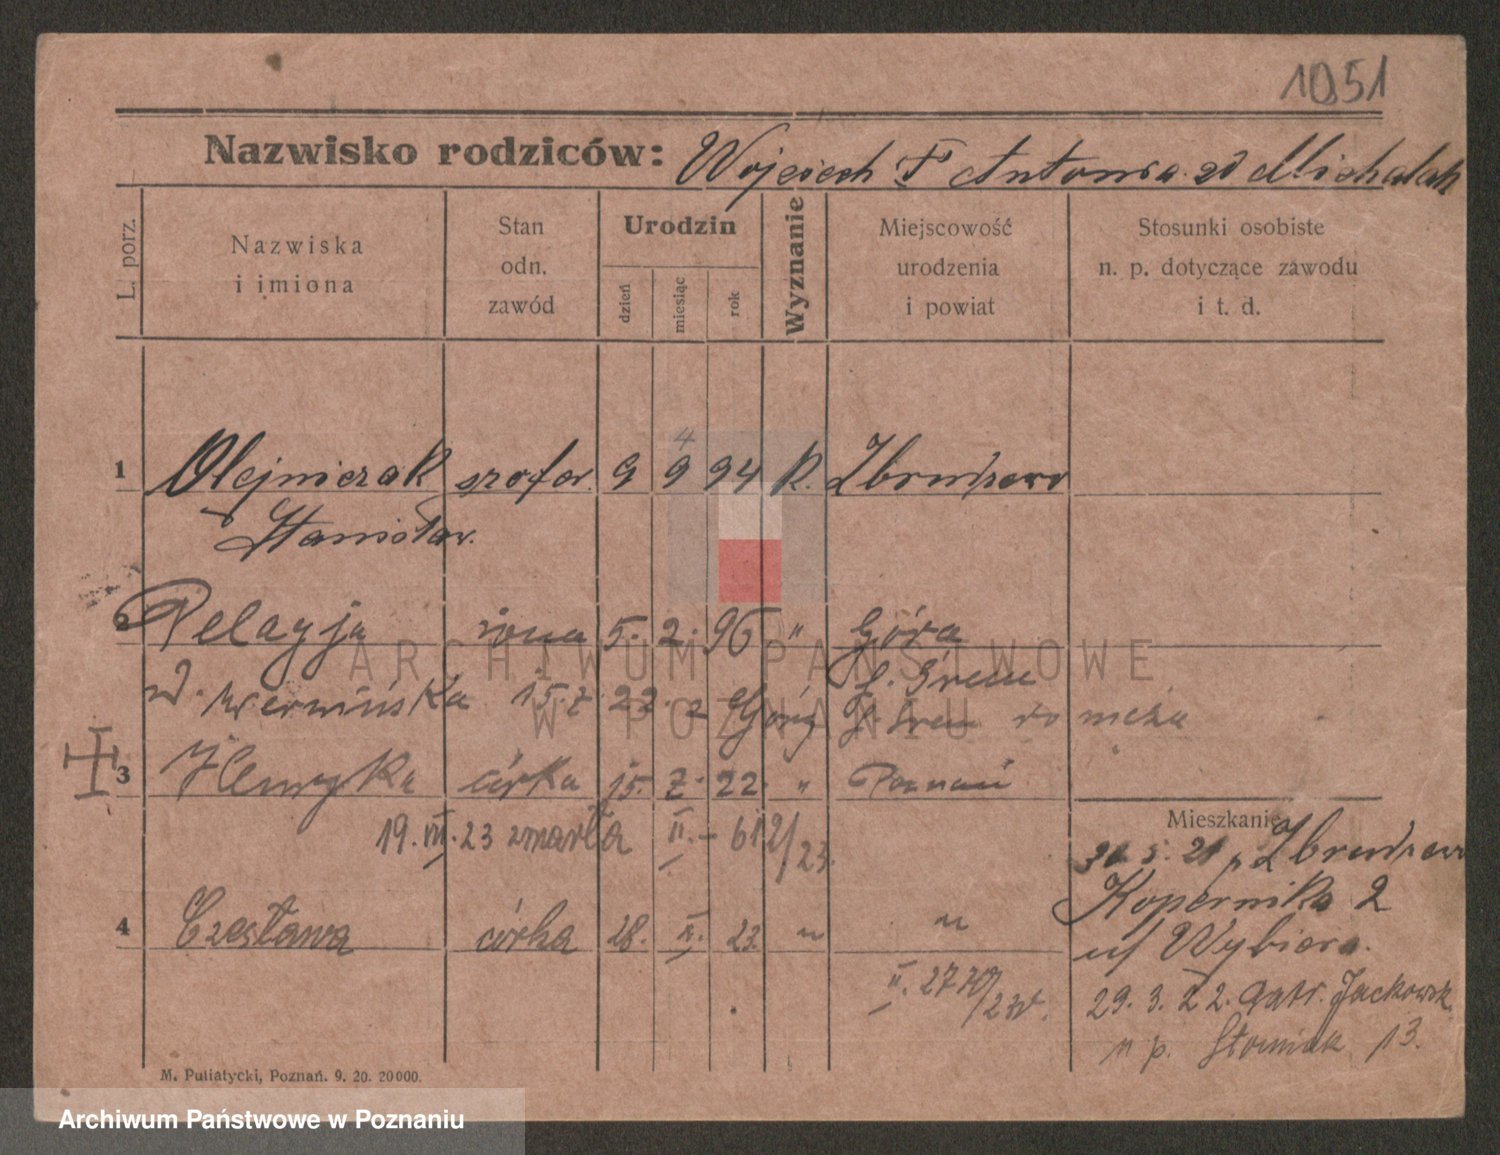 1051
Nazwisko rodziców: Wojciech i Antonina zd Michalak
L. porz.
Nazwiska
i imiona
Stan
odn.
zawód
Urodzin
dzień
miesiąc
rok
Wyznanie
Miejscowość
urodzenia
i powiat
Stosunki osobiste
n. p. dotyczące zawodu
i t. d.
4
1 Olejniczak szofer. 9 9 94 R.
Stanisław.
2 Pelagja żona 5. 2. 96 " Góra
15. 2 22
3 Henryka córka 15. 2. 22. " Poznań
19. VII. 23 zmarła II. - 612/23.
4 Czesława córka 28. X. 23. " "
II. 2770/23
Mieszkanie
Kopernika 2
u/ Wybiera.
29. 3. 22. Jackowsk
n p. Słomiak 13.
M. Putiatycki, Poznań. 9. 20. 20000.
ARCHIWUM PAŃSTWOWE
W POZNANIU
Archiwum Państwowe w Poznaniu